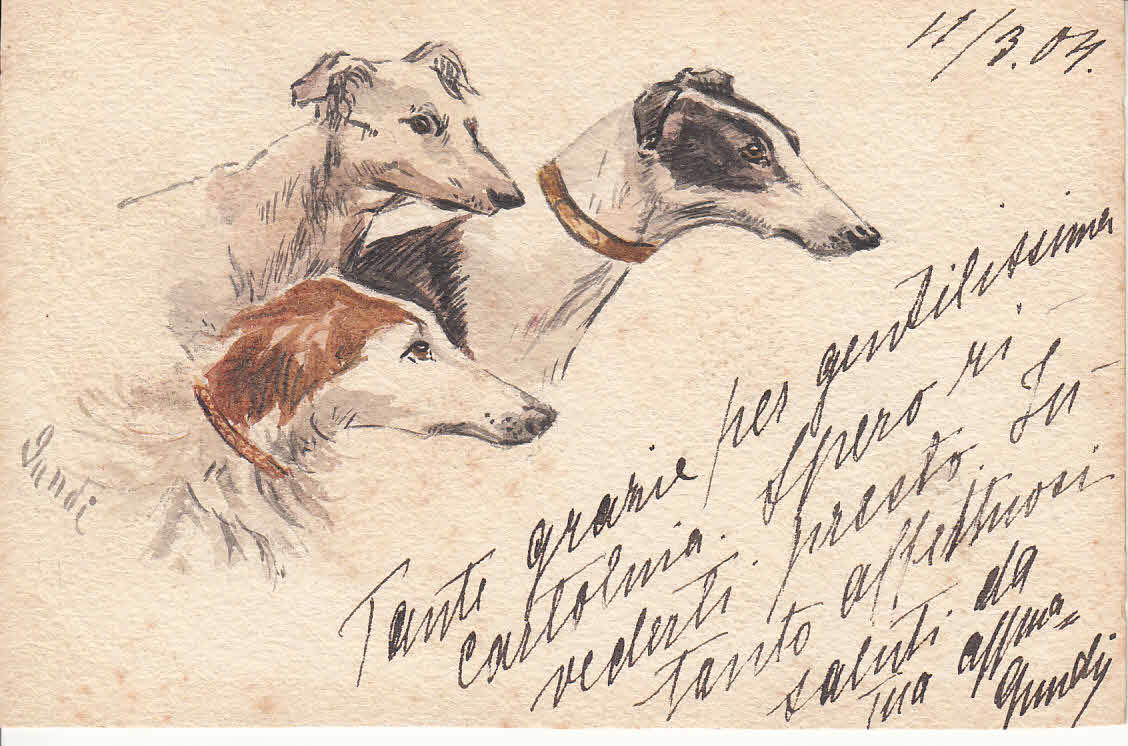 11/3.04.
Tante grazie per gentilissima
cartolina. Spero ri-
vederti presto. In-
tanto affettuosi
saluti da
tua affma=
Gundij
Gundi